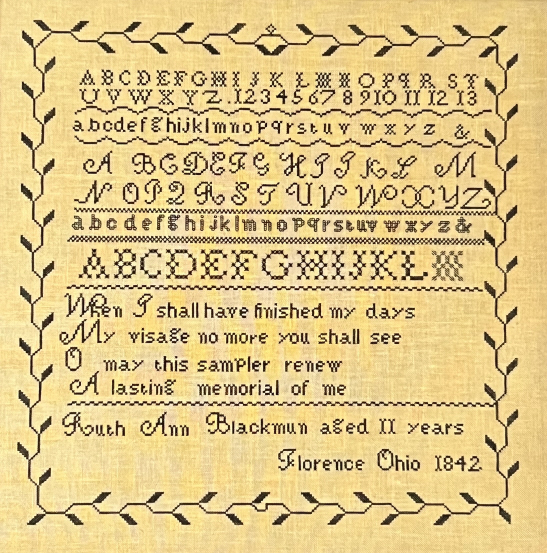 A B C D E F G H I J K L M N O P Q R S T
U V W X Y Z . 1 2 3 4 5 6 7 8 9 10 11 12 13
a b c d e f g h i j k l m n o p q r s t u v w x y z &
A B C D E F G H I J K L M
N O P Q R S T U V W X Y Z
a b c d e f g h i j k l m n o p q r s t u v w x y z &
A B C D E F G H I J K L M
When I shall have finished my days
My visage no more you shall see
O may this sampler renew
A lasting memorial of me
Ruth Ann Blackmun aged 11 years
Florence Ohio 1842